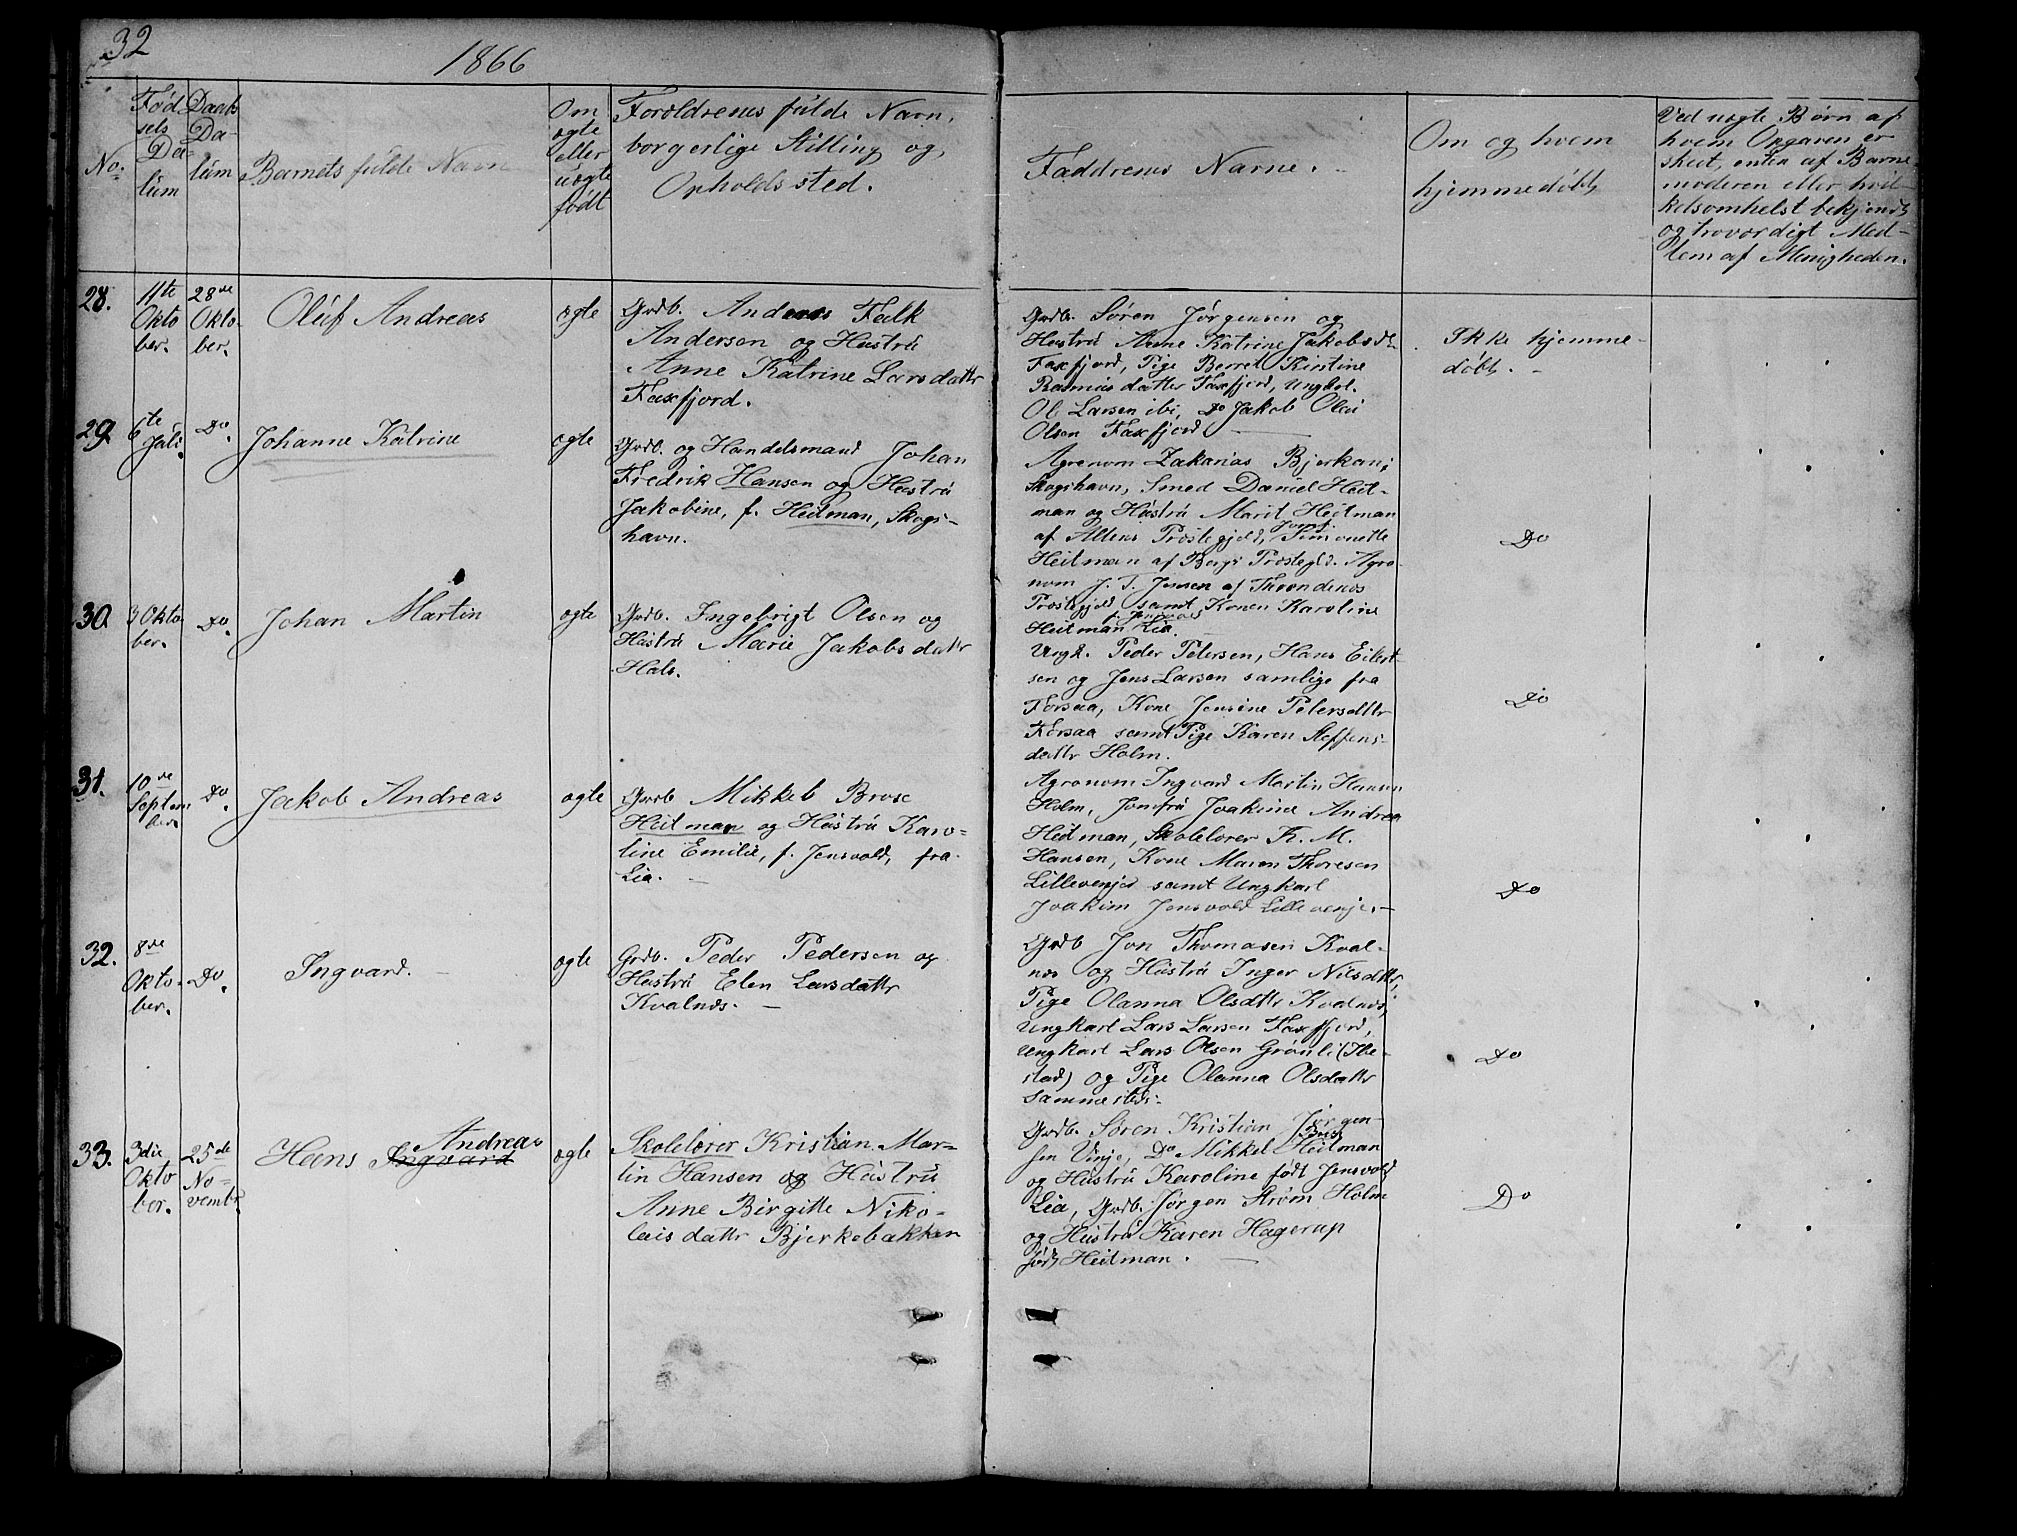 32
1866
No.
Fød-
sels
Da-
tum
Daabs
Da-
tum
Barnets fulde Navn
Om
ægte
eller
uægte
født
Forældrenes fulde Navn,
borgerlige Stilling og
Opholdssted.
Faddrenes Navne.
Om og hvem
hjemmedøbt
Ved uægte Børn af
hvem Opgaven er
skeet, enten af Barne-
moderen eller hvil-
kelsomhelst bekjendt
og troværdigt Med-
lem af Menigheden.
28.
11te
Okto
ber.
28de
Okto-
ber.
Oluf Andreas
ægte
Grdb. Anders Falk
Andersen og Hustru
Anne Katrine Larsdattr
Faxfjord.
Grdb. Søren Jørgensen og
Hustru Anne Katrine Jakobsdt.
Faxfjord, Pige Berret Kirstine
Rasmusdatter Faxfjord, Ungkal.
Ol Larsen ibi, Do Jakob Olai
Olsen Faxfjord
Ikke hjemme-
døbt.
29.
6te
Juli.
Do.
Johanne Katrine
ægte
Grdb. og Handelsmand Johan
Fredrik Hansen og Hustru
Jakobine, f. Heitman, Skogs-
havn.
Agronom Zakarias Bjerkan,
Skogshavn, Smed Daniel Heit-
man og Hustru Marit Heitman
af Altens Præstegjeld, Jomf. Simonette
Heitman af Bergs Præstegld. Agro-
nom J. T. Jensen af Throndenæs
Præstegjeld samt Konen Karoline
Heitman f. Jensvold Lia.
Do
30.
3 Okto
ber.
Do.
Johan Martin
ægte
Grdb. Ingebrigt Olsen og
Hustru Marie Jakobsdattr
Hals.
Ungk. Peder Petersen, Hans Eilert-
sen og Jens Larsen samlige fra
Forsaa, Kone Jensine Petersdttr
Forsaa samt Pige Karen Steffens-
dattr Holm.
Do
31.
10de
Septem
ber.
Do.
Jakob Andreas
ægte
Grdb Mikkel Brose
Heitman og Hustru Karo-
line Emilie, f. Jensvold, fra
Lia.
Agronom Ingvard Martin Hansen
Holm, Jomfru Joakime Andrea
Heitman, Skolelærer K. M.
Hansen, Kone Maren Thoresen
Lillevenjes samt Ungkarl
Joakim Jensvold Lillevenje.
Do
32.
8de
Okto-
ber.
Do.
Ingvard.
ægte
Grdb. Peder Pedersen og
Hustru Elen Larsdattr
Kvalnæs.
Grdb Jon Thomasen Kval-
næs og Hustru Inger Nilsdattr,
Pige Olanna Olsdttr Kvalnæs,
Ungkarl Lars Larsen Faxfjord,
Ungkarl Lars Olsen Grønli (Ibe-
stad) og Pige Olanna Olsdattr
sammesteds.
Do
33.
3die
Okto
ber.
25de
No-
vembr.
Hans Ingvard Andreas
ægte
Skolelærer Kristian Mar-
tin Hansen og Hustru
Anne Birgitte Niko-
laisdattr Bjerkebakken
Grdb. Søren Kristian Jørgen-
sen Vinje, Do Mikkel Heitman
og Hustru Karoline født Jensvold
Lia, Grdb. Jørgen Strøm Holm
og Hustru Karen Hagerup
født Heitman.
Do